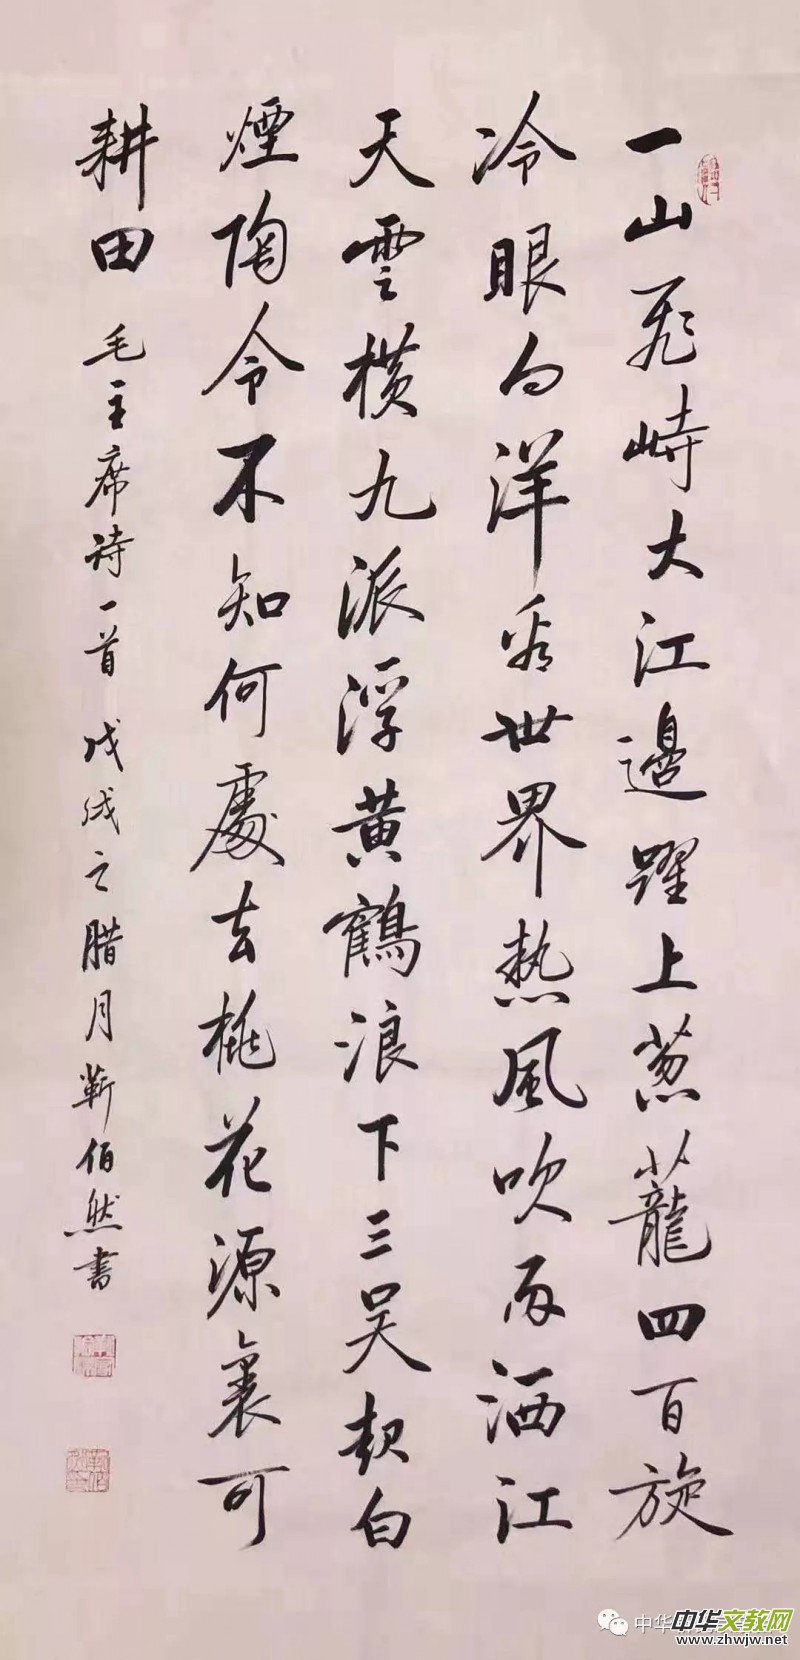 一山飛峙大江邊躍上葱蘢四百旋
冷眼向洋看世界熱風吹雨洒江
天雲橫九派浮黃鶴浪下三吳起白
煙陶令不知何處去桃花源裏可
耕田 毛主席诗一首 戊戌之腊月靳佰然書
中华文教网
www.zhwjw.net